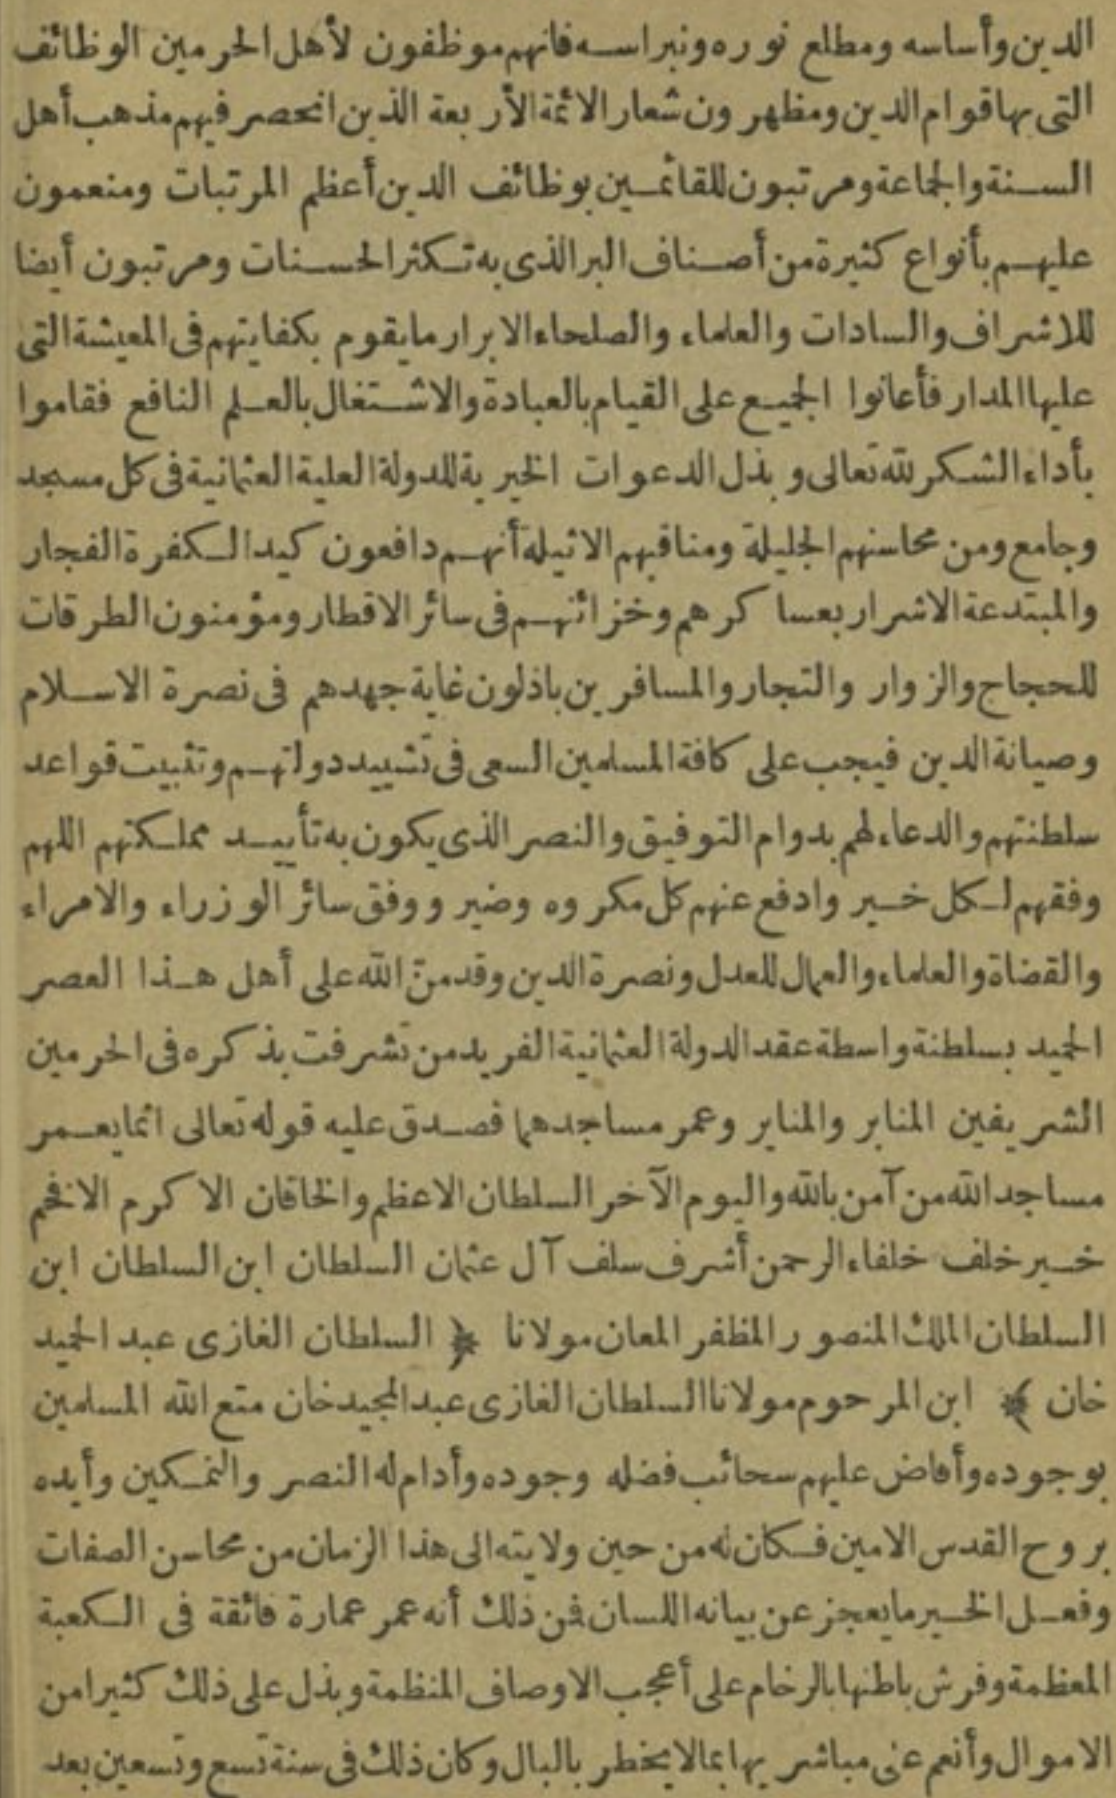 الدين وأساسه ومطلع نوره ونبراسه فانهم موظفون لأهل الحرمين الوظائف
التى بها قوام الدين ومظهرون شعار الائمة الأربعة الذين انحصر فيهم مذهب أهل
السنة والجماعة ومرتبون للقائمين بوظائف الدين أعظم المرتبات ومنعمون
عليهم بأنواع كثيرة من أصناف البر الذى به تكثر الحسنات ومرتبون أيضا
للاشراف والسادات والعلماء والصلحاء الابرار ما يقوم بكفايتهم فى المعيشة التى
عليها المدار فأعانوا الجميع على القيام بالعبادة والاشتغال بالعلم النافع فقاموا
بأداء الشكر لله تعالى وبذل الدعوات الخيرية للدولة العلية العثمانية فى كل مسجد
وجامع ومن محاسنهم الجليلة ومناقبهم الاثيلة أنهم دافعون كيد الكفرة الفجار
والمبتدعة الاشرار بعساكرهم وخزائنهم فى سائر الاقطار ومؤمنون الطرقات
للحجاج والزوار والتجار والمسافرين باذلون غاية جهدهم فى نصرة الاسلام
وصيانة الدين فيجب على كافة المسلمين السعى فى تشييد دولتهم وتثبيت قواعد
سلطنتهم والدعاء لهم بدوام التوفيق والنصر الذى يكون به تأييد مملكتهم اللهم
وفقهم لكل خير وادفع عنهم كل مكروه وضير ووفق سائر الوزراء والامراء
والقضاة والعلماء والعمال للعدل ونصرة الدين وقد منّ الله على أهل هذا العصر
الحميد بسلطنة واسطة عقد الدولة العثمانية الفريد من تشرفت بذكره فى الحرمين
الشريفين المنابر والمناير وعمر مساجدهما فصدق عليه قوله تعالى انما يعمر
مساجد الله من آمن بالله واليوم الآخر السلطان الاعظم والخاقان الاكرم الافخم
خير خلف خلفاء الرحمن أشرف سلف آل عثمان السلطان ابن السلطان ابن
السلطان الملك المنصور المظفر المعان مولانا ﴿ السلطان الغازى عبد الحميد
خان ﴾ ابن المرحوم مولانا السلطان الغازى عبد المجيد خان متع الله المسلمين
بوجوده وأفاض عليهم سحائب فضله وجوده وأدام له النصر والتمكين وأيده
بروح القدس الامين فكان له من حين ولايته الى هذا الزمان من محاسن الصفات
وفعل الخير ما يعجز عن بيانه اللسان فمن ذلك أنه عمر عمارة فائقة فى الكعبة
المعظمة وفرش باطنها بالرخام على أعجب الاوصاف المنظمة وبذل على ذلك كثيرا من
الاموال وأنعم على مباشريها بما لا يخطر بالبال وكان ذلك فى سنة تسع وتسعين بعد